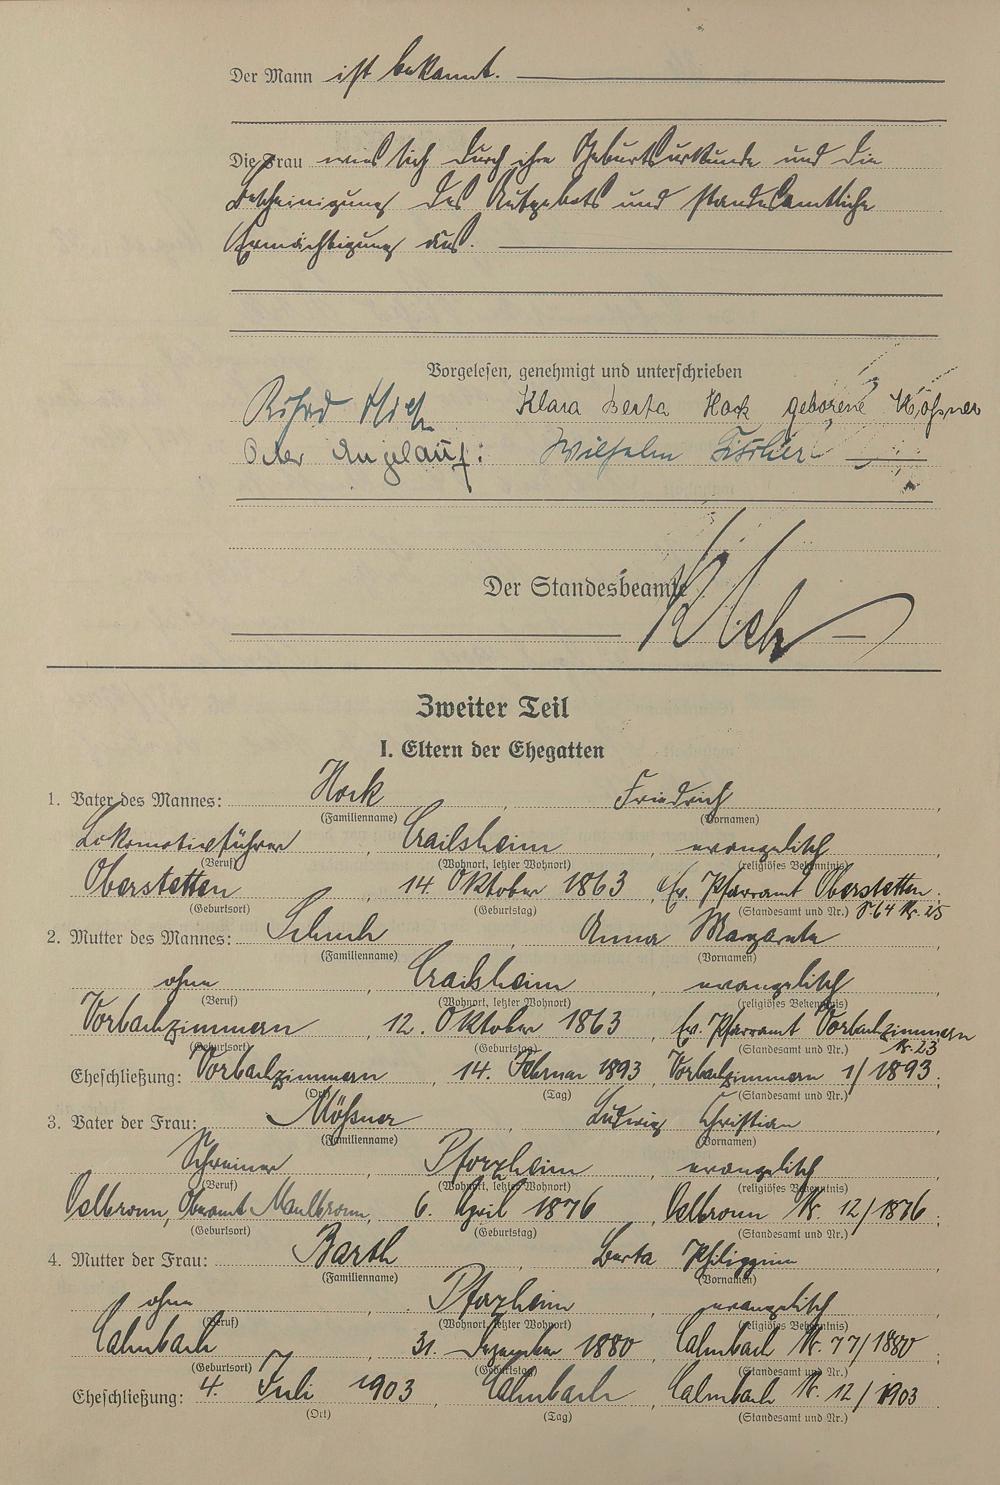 Der Mann ist bekannt.
Die Frau wies sich durch ihre Geburtsurkunde und die
Bescheinigung des Aufgebots und standesamtliche
Ermächtigung aus.
Vorgelesen, genehmigt und unterschrieben
Klara Berta Hock geborene Mößner
Wilhelm Fischer
Der Standesbeamte
Zweiter Teil
I. Eltern der Ehegatten
1. Vater des Mannes: Hock, Friedrich,
(Familienname) (Vornamen)
Lokomotivführer, Crailsheim, evangelisch
(Beruf) (Wohnort, letzter Wohnort) (religiöses Bekenntnis)
Oberstetten 14. Oktober 1863, Ev. Pfarramt Oberstetten.
(Geburtsort) (Geburtstag) (Standesamt und Nr.) S. 64 Nr. 25
2. Mutter des Mannes: Schuh, Anna Margareta,
(Familienname) (Vornamen)
ohne, Crailsheim, evangelisch,
(Beruf) (Wohnort, letzter Wohnort) (religiöses Bekenntnis)
Vorbachzimmern, 12. Oktober 1863 Ev. Pfarramt Vorbachzimmern
(Geburtsort) (Geburtstag) (Standesamt und Nr.) Nr. 23
Eheschließung: Vorbachzimmern, 14. Februar 1893, Vorbachzimmern 1/1893.
(Ort) (Tag) (Standesamt und Nr.)
3. Vater der Frau: Mößner, Ludwig Christian,
(Familienname) (Vornamen)
Schreiner, Pforzheim, evangelisch,
(Beruf) (Wohnort, letzter Wohnort) (religiöses Bekenntnis)
Oelbronn, Oberamt Maulbronn, 6. April 1876, Oelbronn Nr. 12/1876.
(Geburtsort) (Geburtstag) (Standesamt und Nr.)
4. Mutter der Frau: Barth, Berta Philippine,
(Familienname) (Vornamen)
ohne, Pforzheim, evangelisch,
(Beruf) (Wohnort, letzter Wohnort) (religiöses Bekenntnis)
Calmbach, 31. Dezember 1880, Calmbach Nr. 77/1880
(Geburtsort) (Geburtstag) (Standesamt und Nr.)
Eheschließung: 4. Juli 1903, Calmbach, Calmbach Nr. 12/1903
(Ort) (Tag) (Standesamt und Nr.)